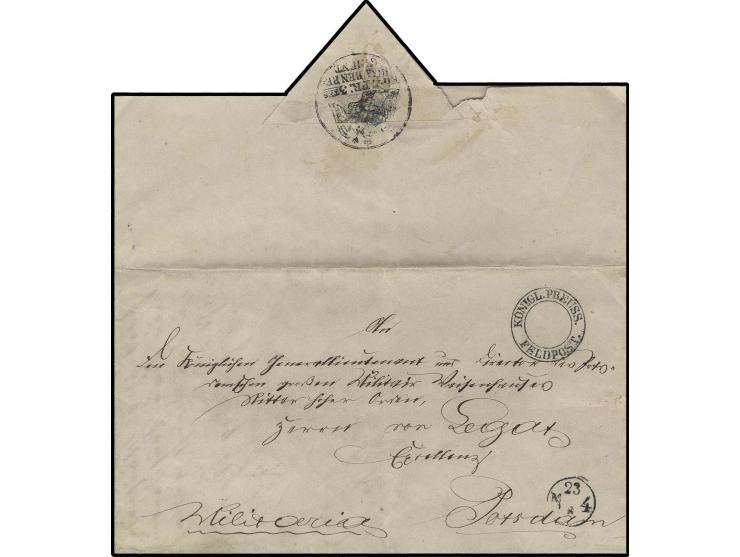 KÖNIGL. PREUSS.
FELDPOST.
An
den Königlichen Generallieutenant und Director des Pots-
damschen großen Militair Waisenhauses
Ritter hoher Orden,
Herrn von
Excellenz
23
4
Militaria
Potsdam